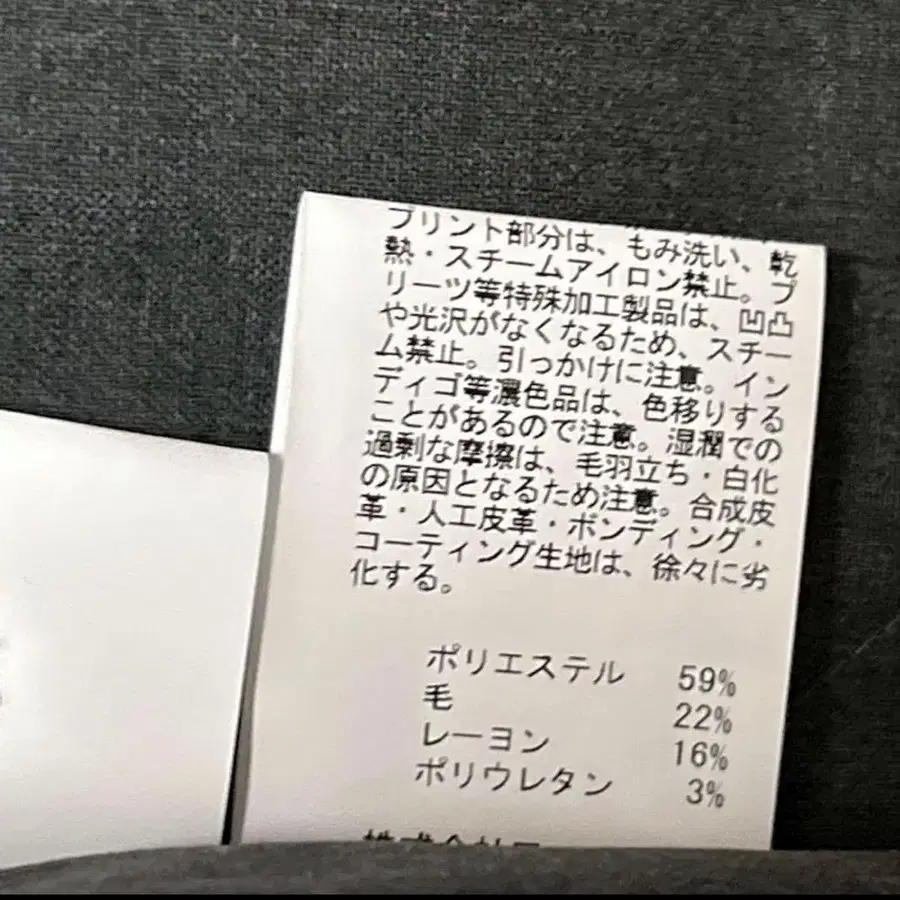 プリント部分は、もみ洗い、乾
熱・スチームアイロン禁止。プ
リーツ等特殊加工製品は、凹凸
や光沢がなくなるため、スチー
ム禁止。引っかけに注意。イン
ディゴ等濃色品は、色移りする
ことがあるので注意。湿潤での
過剰な摩擦は、毛羽立ち・白化
の原因となるため注意。合成皮
革・人工皮革・ボンディング・
コーティング生地は、徐々に劣
化する。
ポリエステル 59%
毛 22%
レーヨン 16%
ポリウレタン 3%
株式会社